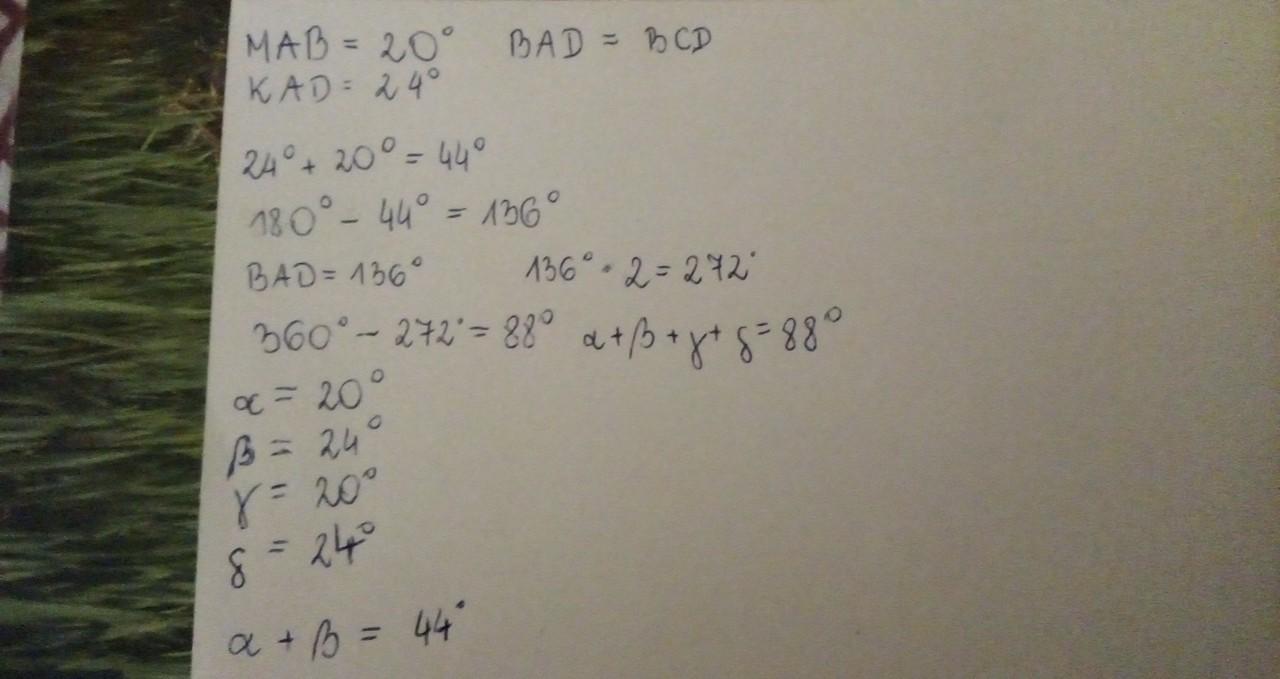 MAB = 20° BAD = BCD
KAD = 24°
24° + 20° = 44°
180° - 44° = 136°
BAD = 136° 136° · 2 = 272°
360° - 272° = 88° α + β + γ + δ = 88°
α = 20°
β = 24°
γ = 20°
δ = 24°
α + β = 44°